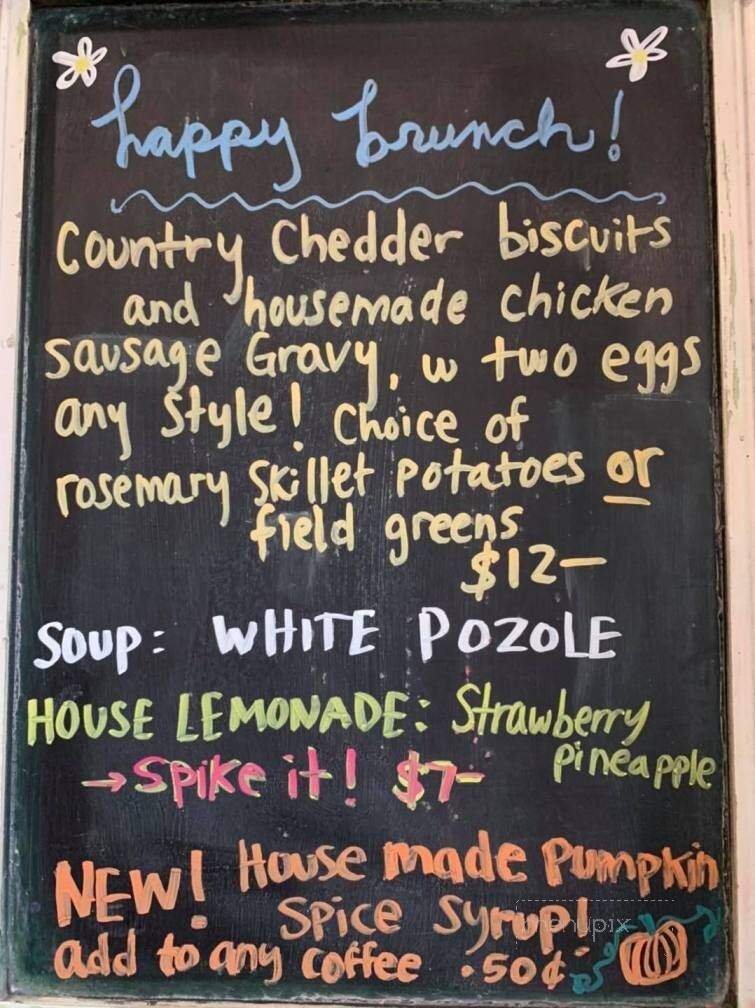 happy brunch!
Country Chedder biscuits
and housemade chicken
sausage Gravy, w two eggs
any style! Choice of
rosemary skillet potatoes or
field greens
$12—
SOUP: WHITE POZOLE
HOUSE LEMONADE: Strawberry
pineapple
→ Spike it! $7-
NEW! House made Pumpkin
Spice Syrup!
add to any coffee .50¢
menupix